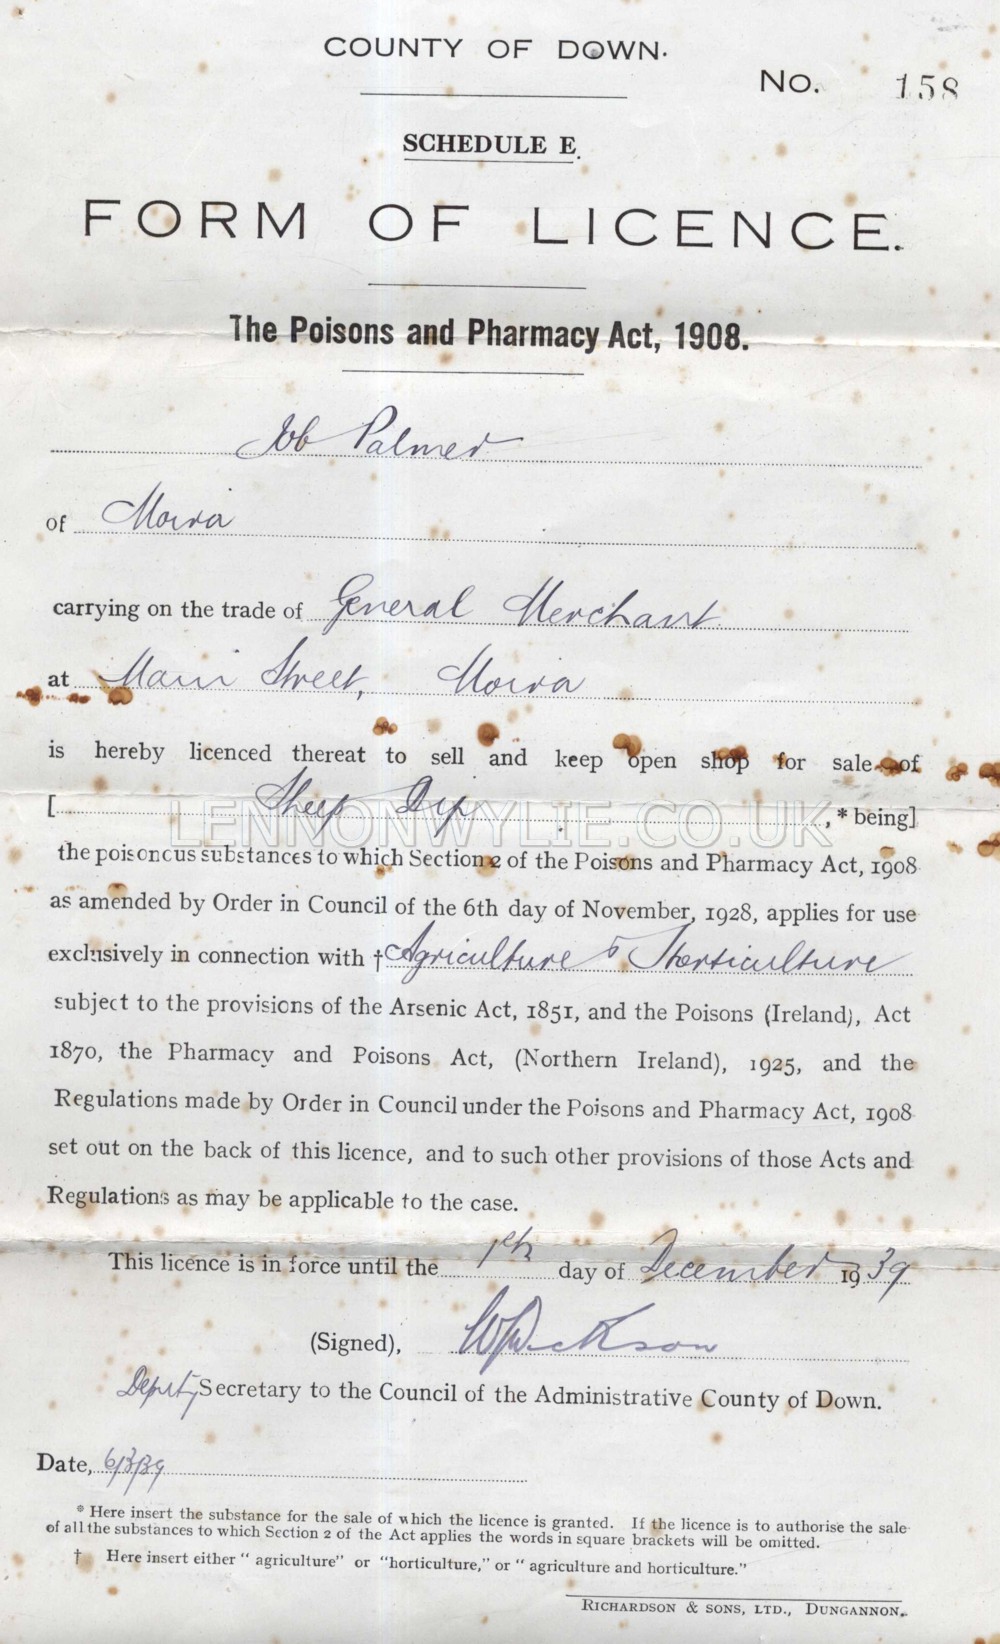 COUNTY OF DOWN.
No. 158
SCHEDULE E.
FORM OF LICENCE.
The Poisons and Pharmacy Act, 1908.
Job Palmer
of Moira
carrying on the trade of General Merchant
at Main Street, Moira
is hereby licenced thereat to sell and keep open shop for sale of
[ Sheep Dip , * being]
LENNONWYLIE.CO.UK
the poisoncus substances to which Section 2 of the Poisons and Pharmacy Act, 1908
as amended by Order in Council of the 6th day of November, 1928, applies for use
exclusively in connection with † Agriculture & Horticulture
subject to the provisions of the Arsenic Act, 1851, and the Poisons (Ireland), Act
1870, the Pharmacy and Poisons Act, (Northern Ireland), 1925, and the
Regulations made by Order in Council under the Poisons and Pharmacy Act, 1908
set out on the back of this licence, and to such other provisions of those Acts and
Regulations as may be applicable to the case.
This licence is in force until the 1st day of December 1939
(Signed), Dickson
Deputy Secretary to the Council of the Administrative County of Down.
Date, 6/3/39
* Here insert the substance for the sale of which the licence is granted. If the licence is to authorise the sale
of all the substances to which Section 2 of the Act applies the words in square brackets will be omitted.
† Here insert either " agriculture" or "horticulture," or " agriculture and horticulture."
RICHARDSON & SONS, LTD., DUNGANNON.